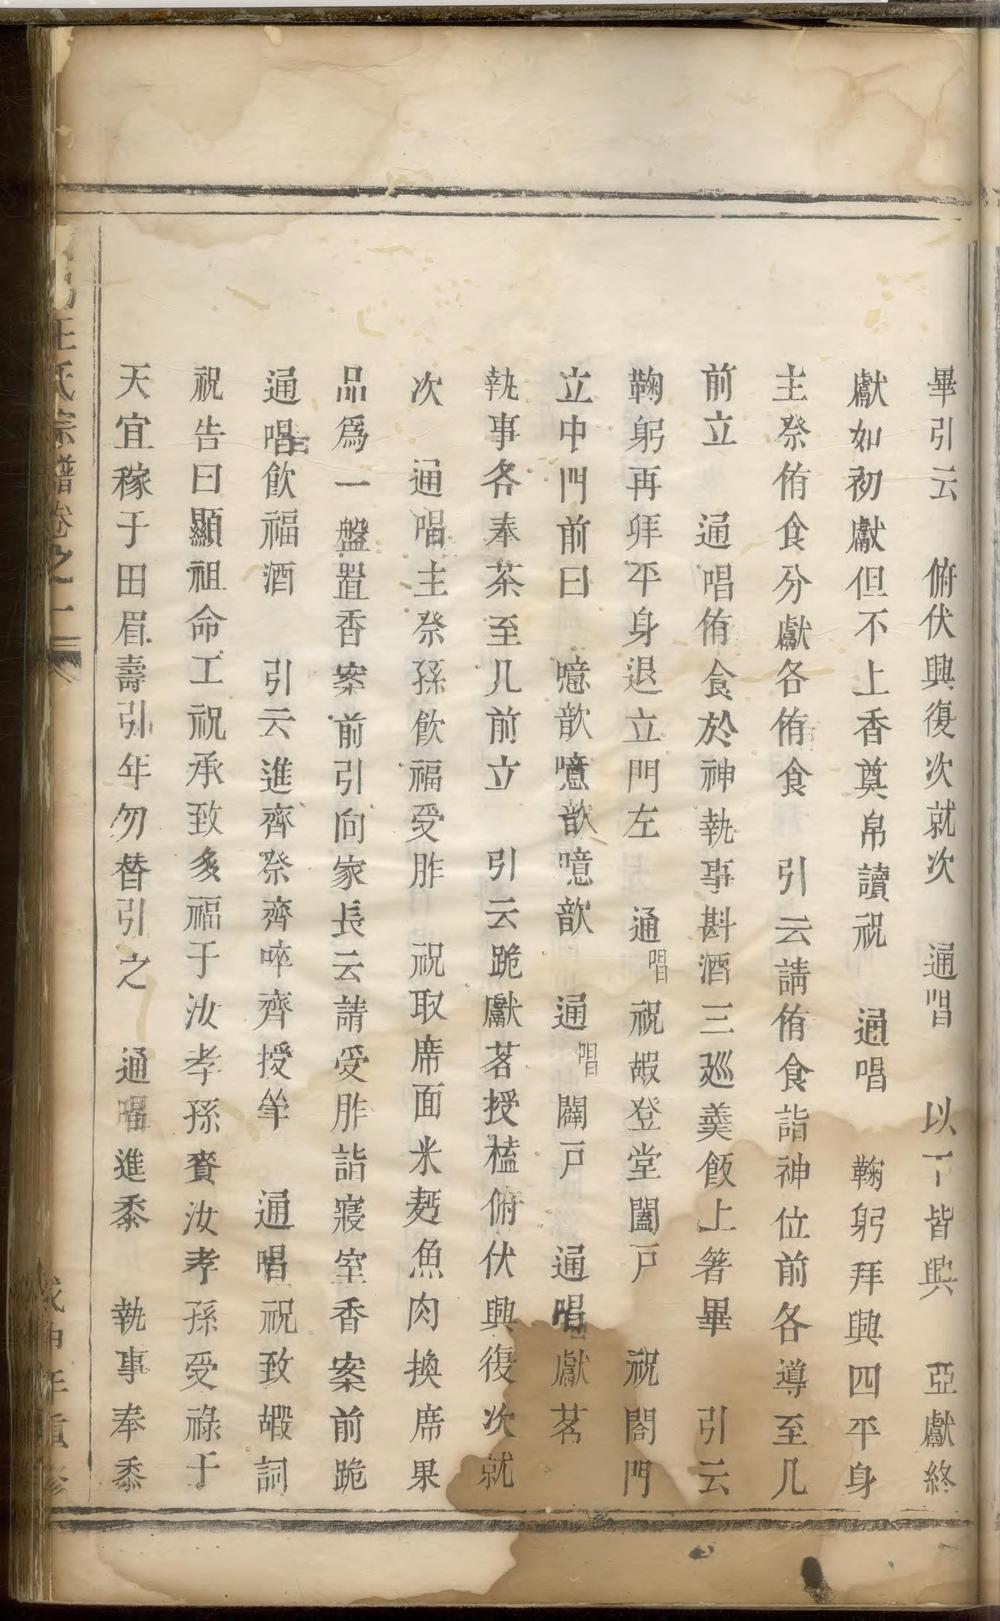 畢引云　俯伏興復次就次　通唱　以下皆興　亞獻終
獻如初獻但不上香奠帛讀祝　通唱　鞠躬拜興四平身
主祭侑食分獻各侑食　引云請侑食詣神位前各導至几
前立　通唱侑食於神執事斟酒三廵羹飯上箸畢　引云
鞠躬再拜平身退立門左　通唱祝嘏登堂闔戶　祝閤門
立中門前曰　噫歆噫歆噫歆　通唱闢戶　通唱獻茗
執事各奉茶至几前立　引云跪獻茗授榼俯伏興復次就
次　通唱主祭孫飲福受胙　祝取席面米麪魚肉換席果
品爲一盤置香案前引向家長云請受胙詣寢室香案前跪
通唱飲福酒　引云進齊祭齊啐齊授爵　通唱祝致嘏詞
祝告曰顯祖命工祝承致多福于汝孝孫賚汝孝孫受祿于
天宜稼于田眉壽引年勿替引之　通唱進黍　執事奉黍
王氏宗譜卷之一
戊申年重修